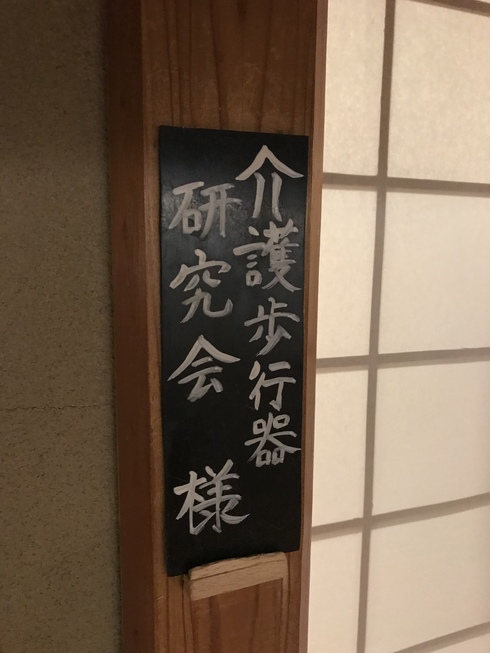 介護歩行器
研究会 様